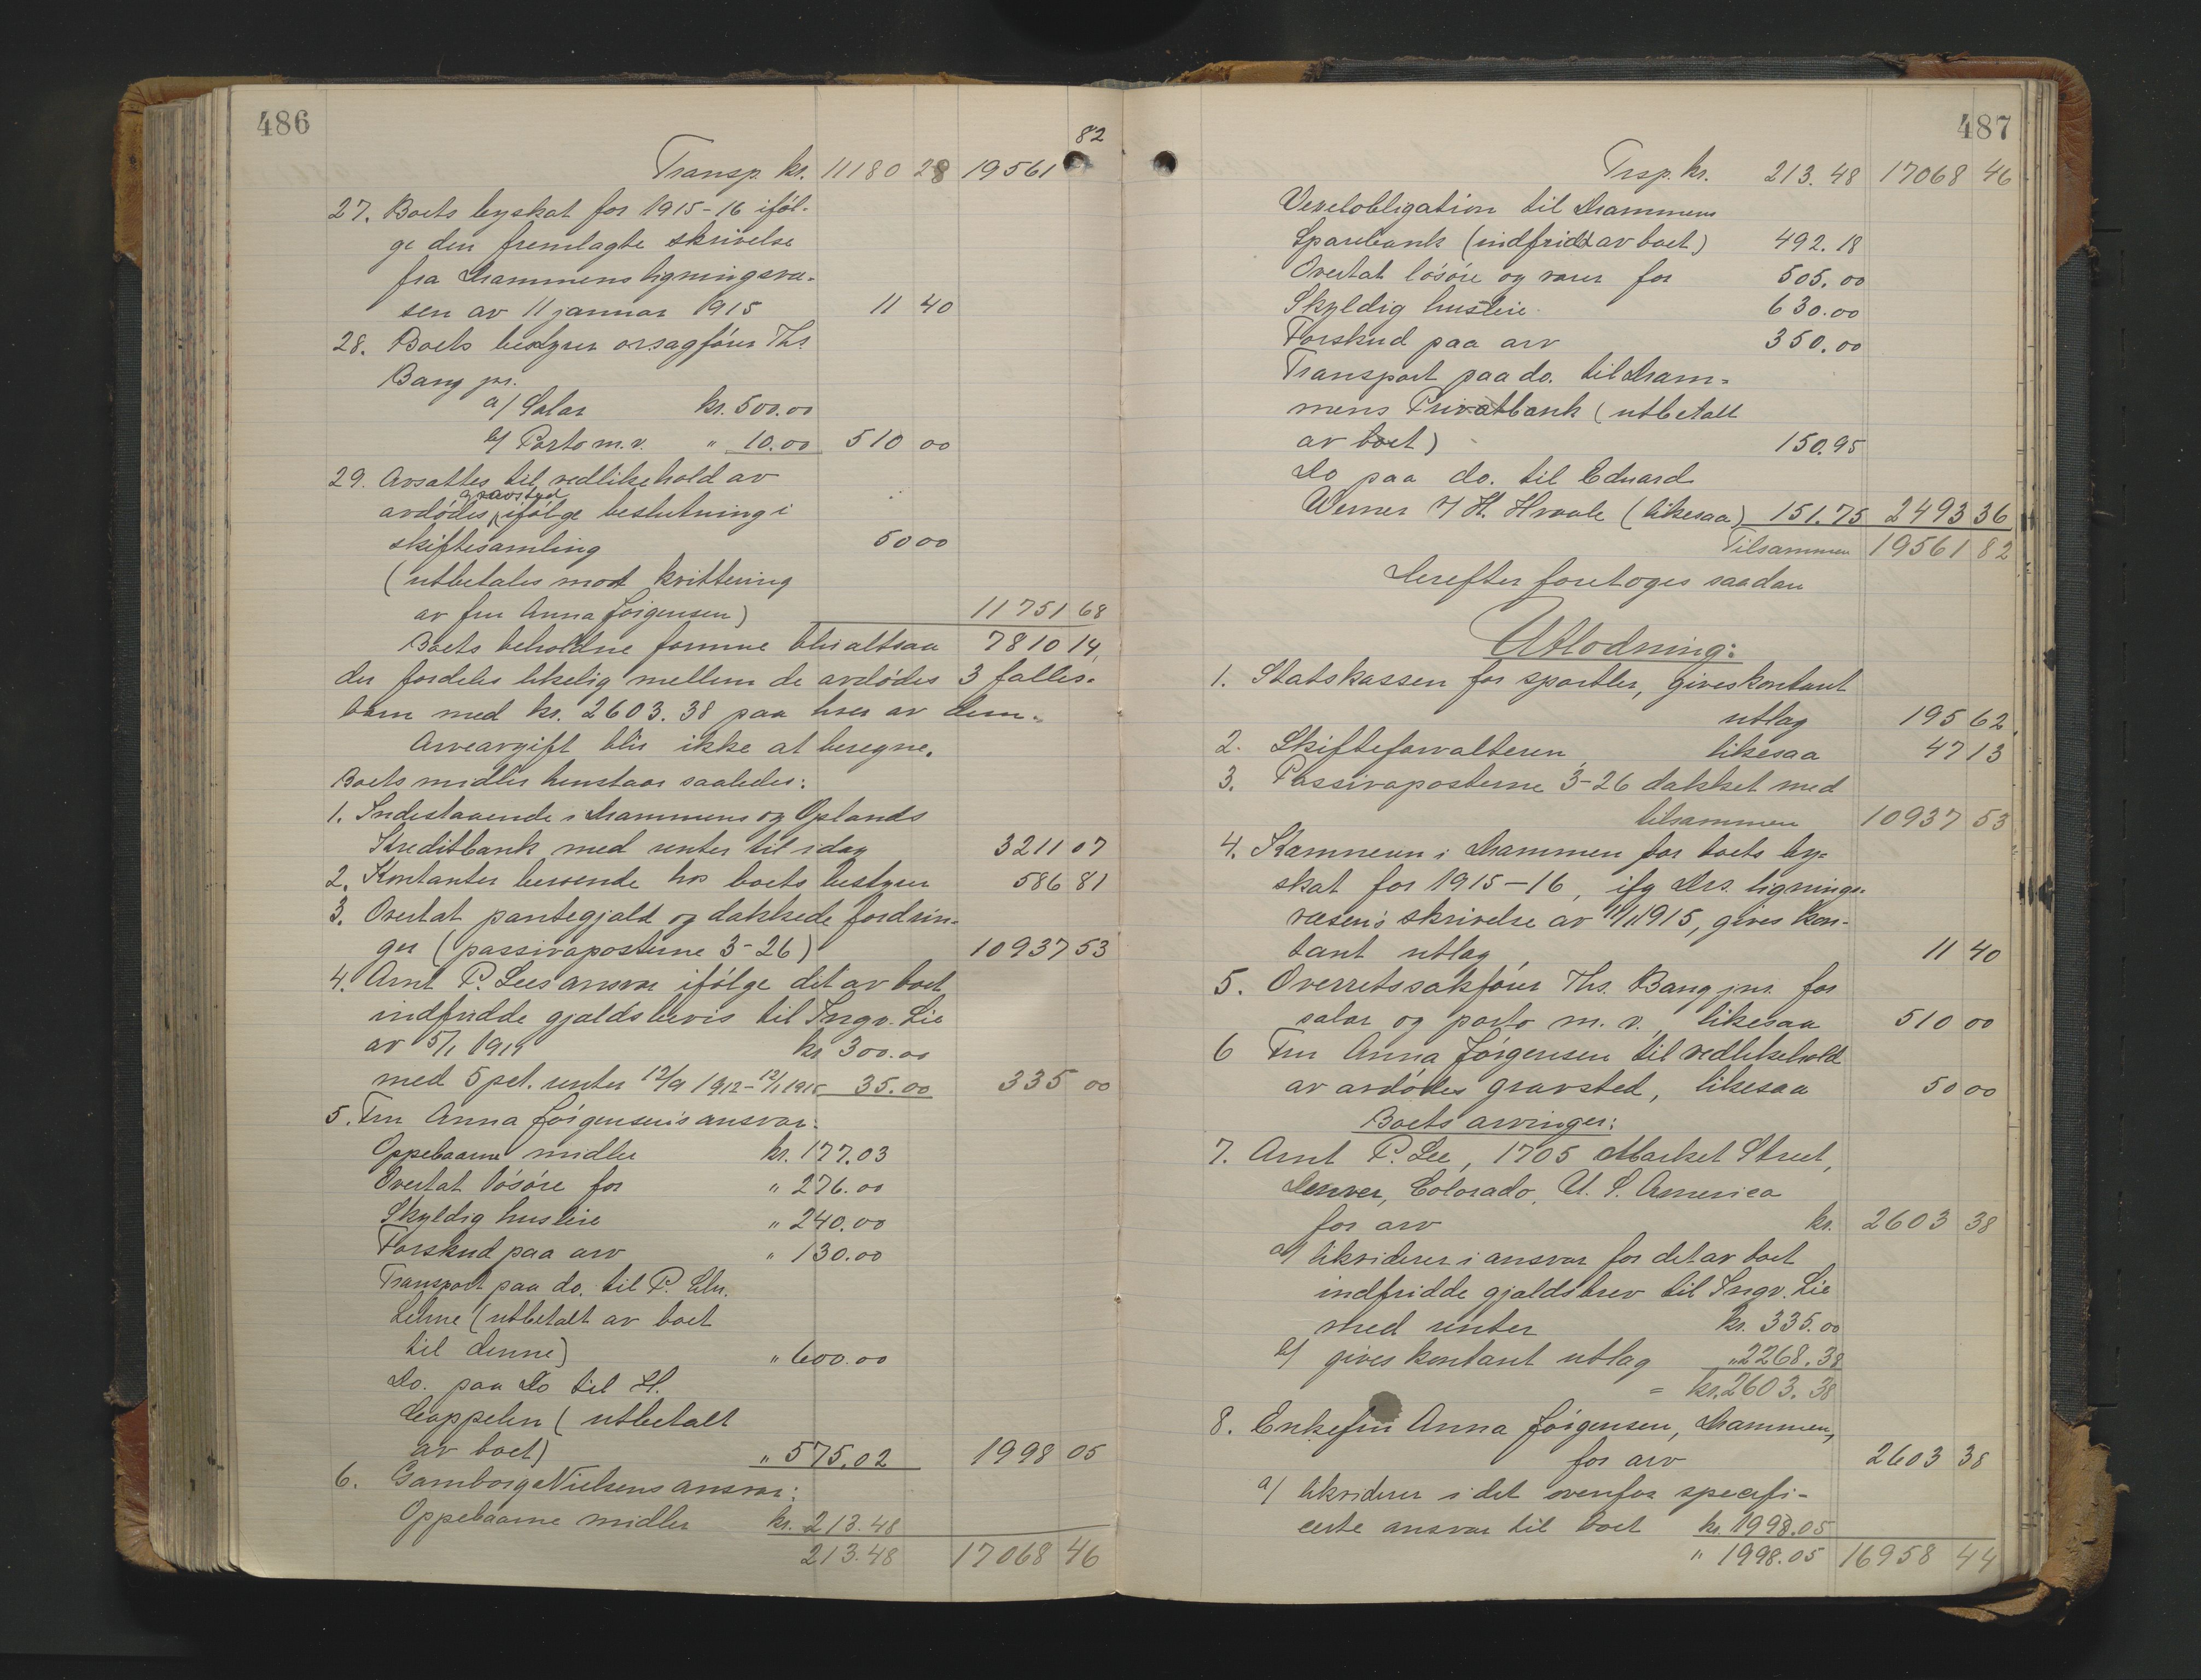 486
82
Transp. kr. 11180 28 19561
27. Boets byskat for 1915-16 iföl-
ge den fremlagte skrivelse
fra Drammens ligningsvæ-
sen av 11 januar 1915 11 40
28. Boets bestyrer orsagförer Ths.
Bang jnr.
a/ Salær kr. 500.00
b/ Porto m.v. " 10.00 510 00
29. Avsattes til vedlikehold av
gravsted
avdödes ifölge beslutning i
skiftesamling 50 00
(utbetales mot kvittering
av fru Anna Jörgensen) 11751 68
Boets beholdne formue blir altsaa 7810 14,
der fordeles likelig mellem de avdödes 3 fælles-
barn med kr. 2603.38 paa hver av dem.
Arveavgift blir ikke at beregne.
Boets midler henstaar saaledes:
1. Indestaaende i Drammens og Oplands
Kreditbank med renter til idag 3211 07
2. Kontanter beroende hos boets bestyrer 586 81
3. Overtat pantegjæld og dækkede fordrin-
ger (passivaposterne 3-26) 10937 53
4. Arnt P. Lees ansvar ifölge det av boet
indfridde gjældsbevis til Ingv. Lie
av 5/1 1914 kr 300.00
med 5 pct. renter 12/9 1912-12/1 1915 35.00 335 00
5. Fru Anna Jörgensens ansvar:
Oppebaarne midler kr. 177.03
Overtat lösöre for " 276.00
Skyldig husleie " 240.00
Forskud paa arv " 130.00
Transport paa do. til P. Chr.
Lehne (utbetalt av boet
til denne) " 600.00
Do. paa Do til H.
Cappelen (utbetalt
av boet) " 575.02 1998 05
6. Gamborg Nielsens ansvar:
Oppebaarne midler kr. 213.48
213.48 17068 46
487
Trsp. kr. 213.48 17068 46
Vexelobligation til Drammens
Sparebank (indfridt av boet) 492.18
Overtat lösöre og varer for 505.00
Skyldig husleie 630.00
Forskud paa arv 350.00
Transport paa do. til Dram-
mens Privatbank (utbetalt
av boet) 150.95
Do paa do. til Eduard
Werner v/ H. Hvaale (likesaa) 151.75 2493 36
Tilsammen 19561 82
Derefter foretoges saadan
Utlodning:
1. Statskassen for sportler, gives kontant
utlæg 195 62
2. Skifteforvalteren, likesaa 47 13
3. Passivaposterne 3-26 dækket med
tilsammen 10937 53
4. Kæmneren i Drammen for boets by-
skat for 1915-16, ifg Drs. lignings-
væsens skrivelse av 11/1 1915, gives kon-
tant utlæg, 11 40
5. Overretssakförer Ths. Bang jnr. for
salær og porto m. v., likesaa 510 00
6 Fru Anna Jörgensen til vedlikehold
av avdödes gravsted, likesaa 50 00
Boets arvinger:
7. Arnt P. Lee, 1705 Market Street,
Denver, Colorado, U. S. America
for arv kr. 2603 38
a/ likviderer i ansvar for det av boet
indfridde gjældsbrev til Ingv. Lie
med renter kr. 335.00
b/ gives kontant utlæg " 2268.38
= kr. 2603.38
8. Enkefru Anna Jörgensen, Drammen,
for arv 2603 38
a/ likviderer i det ovenfor specifi-
certe ansvar til boet kr. 1998.05
" 1998.05 16958 44